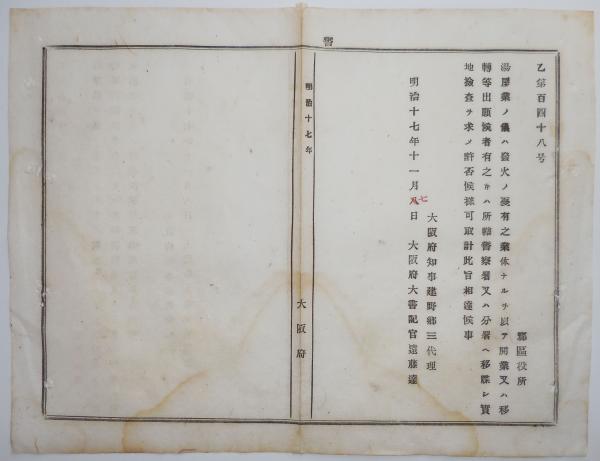 警
乙第百四十八号
郡區役所
湯屋業ノ儀ハ發火ノ憂有之業体ナルヲ以テ開業又ハ移
轉等出願候者有之キハ所轄警察署又ハ分署ヘ移牒シ實
地撿査ヲ求メ許否候樣可取計此旨相達候事
大阪府知事建野郷三代理
明治十七年十一月八日 大阪府大書記官遠藤達
七
明治十七年
大阪府